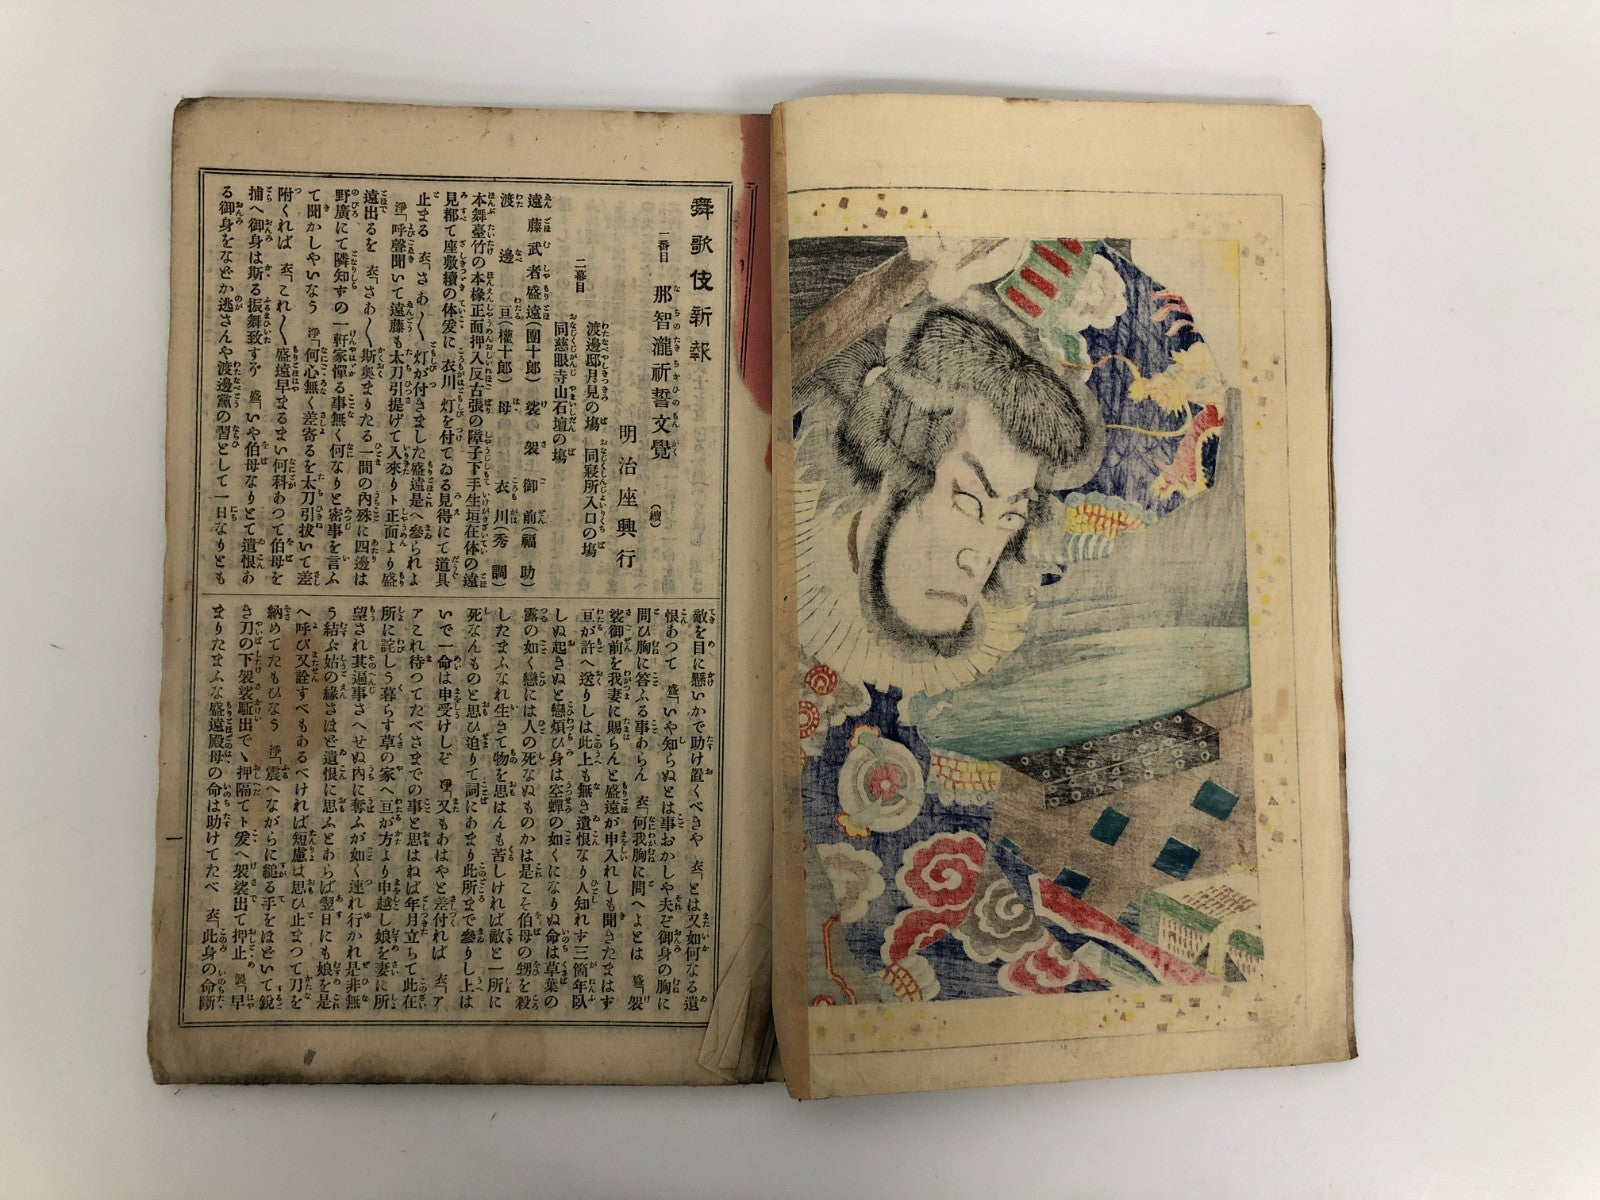 舞歌伎新報
一番目　那智瀧祈誓文覺　（續）
明治座興行
二幕目
渡邊邸月見の塲　同寢所入口の塲
同慈眼寺山石壇の塲
遠藤武者盛遠（團十郎）　袈裟御前（福助）
渡邊の亘（權十郎）　母衣川（秀調）
本舞臺竹の本椽正面押入反古張の障子下手生垣在体の遠
見都て座敷續の体爰に衣川灯を付けてゐる見得にて道具
止まる　衣「さあ〱灯が付きました盛遠是へ參られよ
淨「呼聲聞いて遠藤も太刀引提げて入來りト正面より盛
遠出るを　衣「さあ〱斯奥まりたる一間の內殊に四邊は
野廣にて隣知すの一軒家憚る事無く何なりと密事を言ふ
て聞かしやいなう　淨「何心無く差寄るを太刀引拔いて差
附くれば　衣「これ〱盛遠早まるまい何科あつて伯母を
捕へ御身は斯る振舞致すぞ　盛「いや伯母なりとて遺恨あ
る御身をなどか逃さんや渡邊黨の習として一日なりとも
敵を目に懸いかで助け置くべきや　衣「とは又如何なる遺
恨あつて　盛「いや知らぬとは事おかしや夫ぞ御身の胸に
問ひ胸に答ふる事あらん　衣「何我胸に問へよとは　盛「袈
裟御前を我妻に賜らんと盛遠が申入れしも聞きたまはず
亘が許へ送りしは此上も無き遺恨なり人知れず三箇年臥
しぬ起きぬと戀煩ひ身は空蟬の如くになりぬ命は草葉の
露の如く戀には人の死なぬものかは是こそ伯母の甥を殺
したまふなれ生きて物を思はんも苦しければ敵と一所に
死なんものと思ひ迫りて詞にあまり此所まで參りし上は
いで一命は申受けしぞ　淨「又もあはやと差付れば　衣「ア
アこれ待つてたべさまでの事と思はねば年月立ちて此在
所に詫しう暮らす草の家へ亘が方より申越し娘を妻に所
望され其返事さへせぬ內に奪ふが如く連れ行かれ是非無
う結ぶ姑の緣さほど遺恨に思ふとあらば翌日にも娘を是
へ呼び又詮すべもあるべければ短慮は思ひ止まつて刀を
納めてたもひなう　淨「震へながらに縋る手をほどいて銳
き刀の下袈裟駈出で、押隔てト爰へ袈裟出て押止　袈「早
まりたまふな盛遠殿母の命は助けてたべ　衣「此身の命斷
一